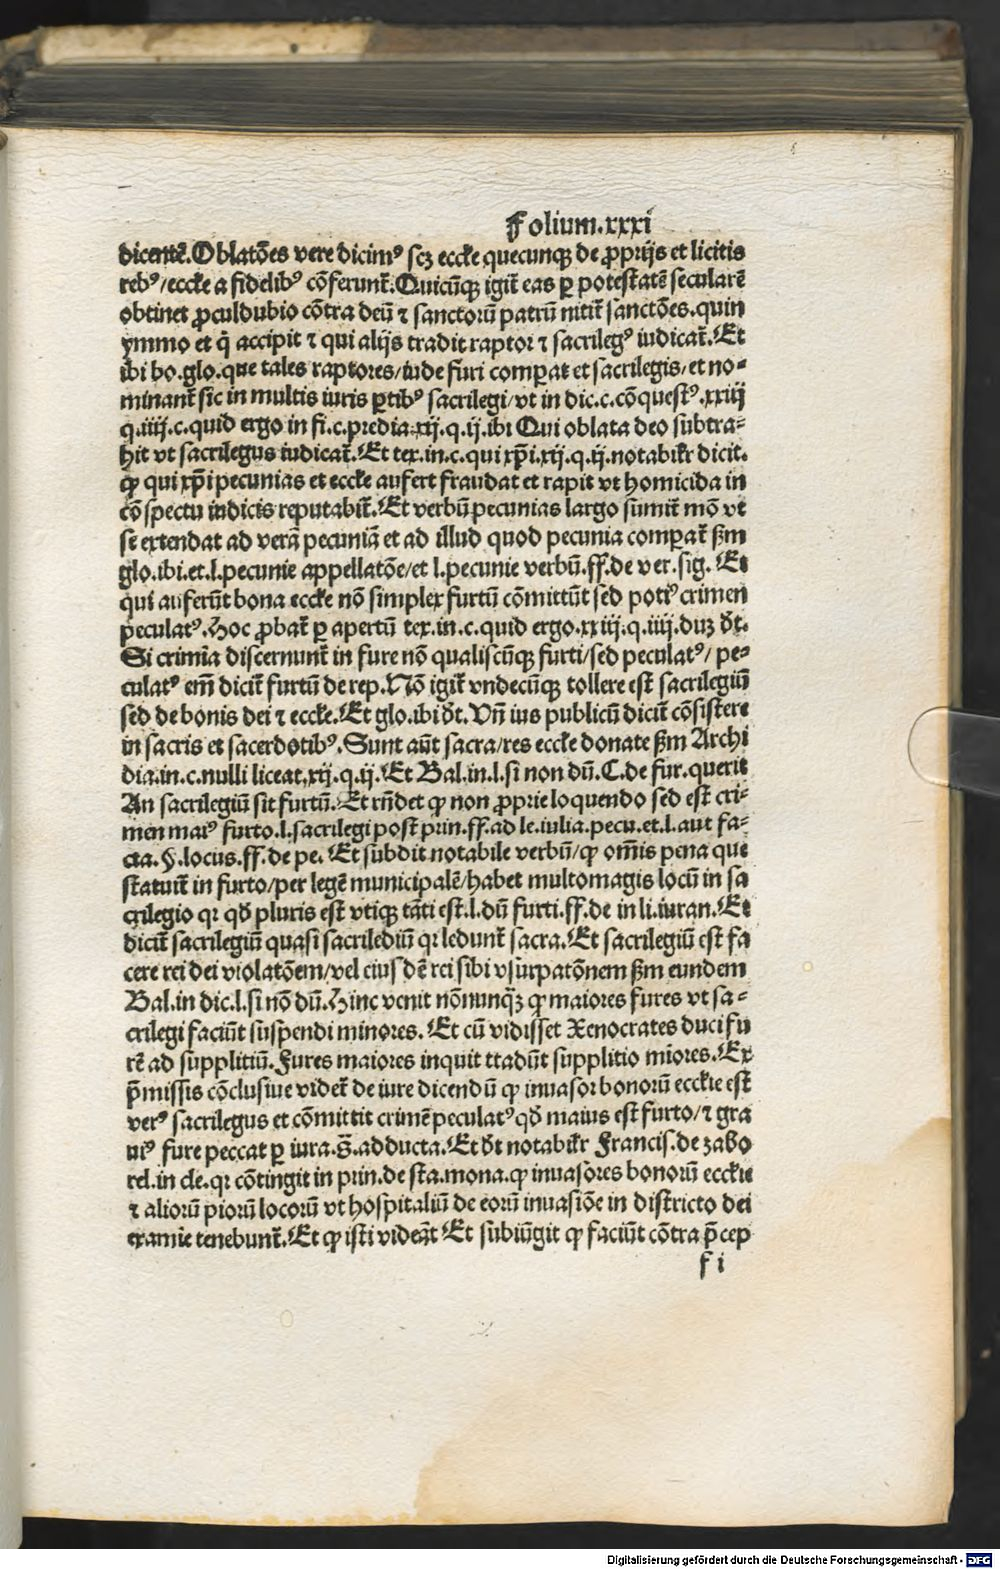 Folium.xxxi
dicentẽ. Oblatões vere dicimꝰ scꝫ eccłe quecunqꝫ de ꝓprijs et licitis
rebꝰ/eccłe a fidelibꝰ cõferunt̃. Quicũqꝫ igit̃ eas ꝑ potestatẽ secularẽ
obtinet ꝓculdubio cõtra deũ ⁊ sanctorũ patrũ nitit̃ sanctões. quin
ymmo et q̃ accipit ⁊ qui alijs tradit raptor ⁊ sacrilegꝰ iudicat̃. Et
ibi bo. glo. que tales raptores/iude furi comꝑat et sacrilegis/et no⸗
minant̃ sic in multis iuris ꝑtibꝰ sacrilegi/vt in dic. c. cõquestꝰ. xxiij
q. iiij. c. quid ergo in fi. c. predia. xij. q. ij. ibi Qui oblata deo subtra⸗
hit vt sacrilegus iudicat̃. Et tex. in. c. qui xp̃i. xij. q. ij. notabilr̃ dicit.
ꝙ qui xp̃i pecunias et eccłe aufert fraudat et rapit vt homicida in
cõspectu iudicis reputabit̃. Et verbũ pecunias largo sumit̃ mõ vt
se extendat ad verã pecuniã et ad illud quod pecunia comꝑat̃ ẜm
glo. ibi. et. l. pecunie appellatõe/et l. pecunie verbũ. ff. de ver. sig. Et
qui auferũt bona eccłe nõ simplex furtũ cõmittũt sed potiꝰ crimen
peculatꝰ. Hoc ꝓbat̃ ꝑ apertũ tex. in. c. quid ergo. xxiij. q. iiij. duꝫ dr̃t.
Si crimĩa discernunt̃ in fure nõ qualiscũqꝫ furti/sed peculatꝰ/ pe⸗
culatꝰ em̃ dicit̃ furtũ de rep. Nõ igit̃ vndecũqꝫ tollere est sacrilegiũ
sed de bonis dei ⁊ eccłe. Et glo. ibi dr̃t. Vñ ius publicũ dicit̃ cõsistere
in sacris et sacerdotibꝰ. Sunt aũt sacra/res eccłe donate ẜm Archi
dia. in. c. nulli liceat. xij. q. ij. Et Bal. in. l. si non dũ. C. de fur. querit
An sacrilegiũ sit furtũ. Et rñdet ꝙ non ꝓprie loquendo sed est cri⸗
men maiꝰ furto. l. sacrilegi post prin. ff. ad le. iulia. pecu. et. l. aut fa⸗
cta. §. locus. ff. de pe. Et subdit notabile verbũ/ꝙ om̃is pena que
statuit̃ in furto/per legẽ municipalẽ/habet multomagis locũ in sa
crilegio qr qd̃ pluris est vtiqꝫ tãti est. l. dũ furti. ff. de in li. iuran. Et
dicit̃ sacrilegiũ quasi sacrilediũ qr ledunt̃ sacra. Et sacrilegiũ est fa
cere rei dei violatõem/vel eius dẽ rei sibi vsurpatõnem ẜm eundem
Bal. in dic. l. si nõ dũ. Hinc venit nõnunqꝫ̃ ꝙ maiores fures vt sa⸗
crilegi faciũt suspendi minores. Et cũ vidisset Xenocrates duci fu
rẽ ad supplitiũ. Fures maiores inquit ttadũt supplitio mĩores. Ex
p̃missis cõclusiue videt̃ de iure dicendũ ꝙ inuasor bonorũ ecckie est
verꝰ sacrilegus et cõmittit crimẽ peculatꝰ qd̃ maius est furto/⁊ gra
uiꝰ fure peccat ꝑ iura. s̃. adducta. Et dr̃t notabilr̃ Francis. de zabo
rel. in cle. qr cõtingit in prin. de sta. mona. ꝙ inuasores bonorũ ecckie
⁊ aliorũ piorũ locorũ vt hospitaliũ de eorũ inuasiõe in districto dei
examĩe tenebunt̃. Et ꝙ isti videãt Et subiũgit ꝙ faciũt cõtra p̃cep
f i
Digitalisierung gefördert durch die Deutsche Forschungsgemeinschaft - DFG